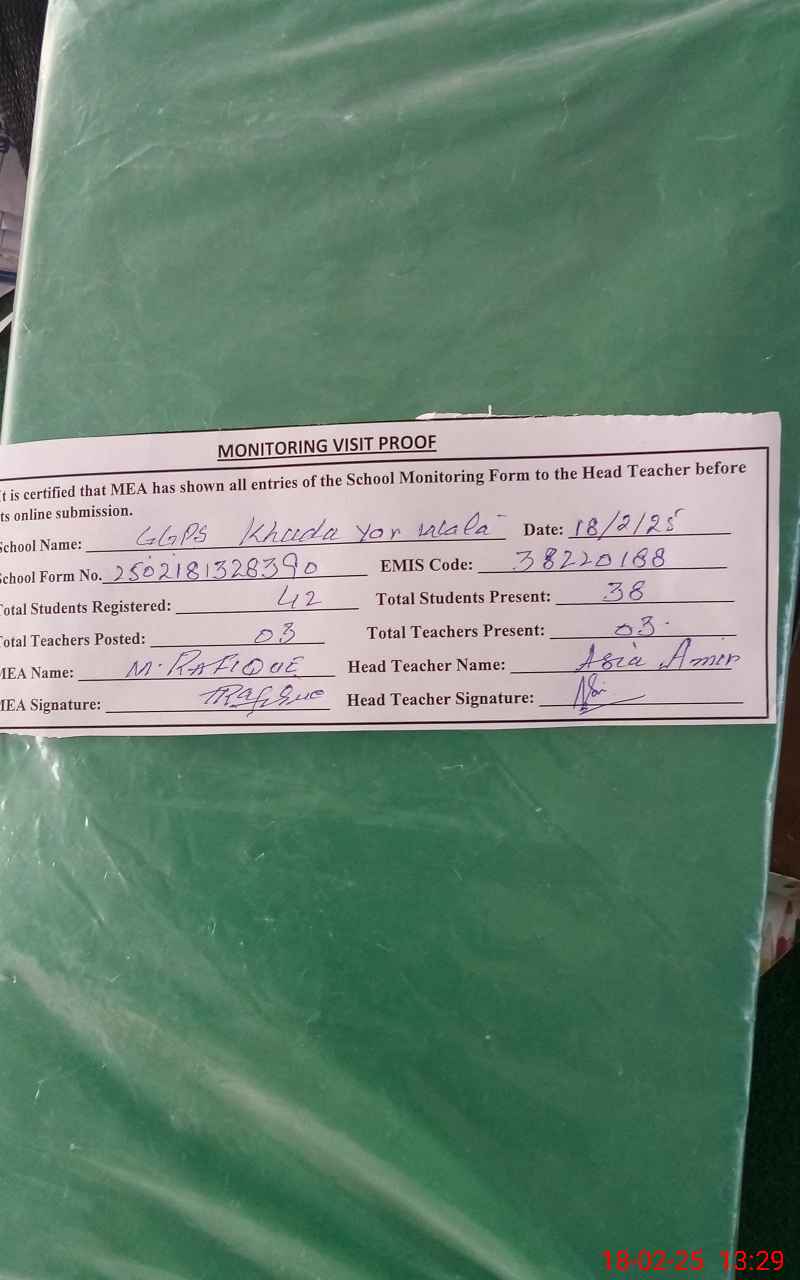 MONITORING VISIT PROOF
It is certified that MEA has shown all entries of the School Monitoring Form to the Head Teacher before
its online submission.
School Name: GGPS Khuda Yar wala Date: 18/2/25
School Form No. 2502181328390 EMIS Code: 38220188
Total Students Registered: 42 Total Students Present: 38
Total Teachers Posted: 03 Total Teachers Present: 03
MEA Name: M. RAFIQUE Head Teacher Name: Asia Amir
MEA Signature: MRafique Head Teacher Signature:
18-02-25 13:29